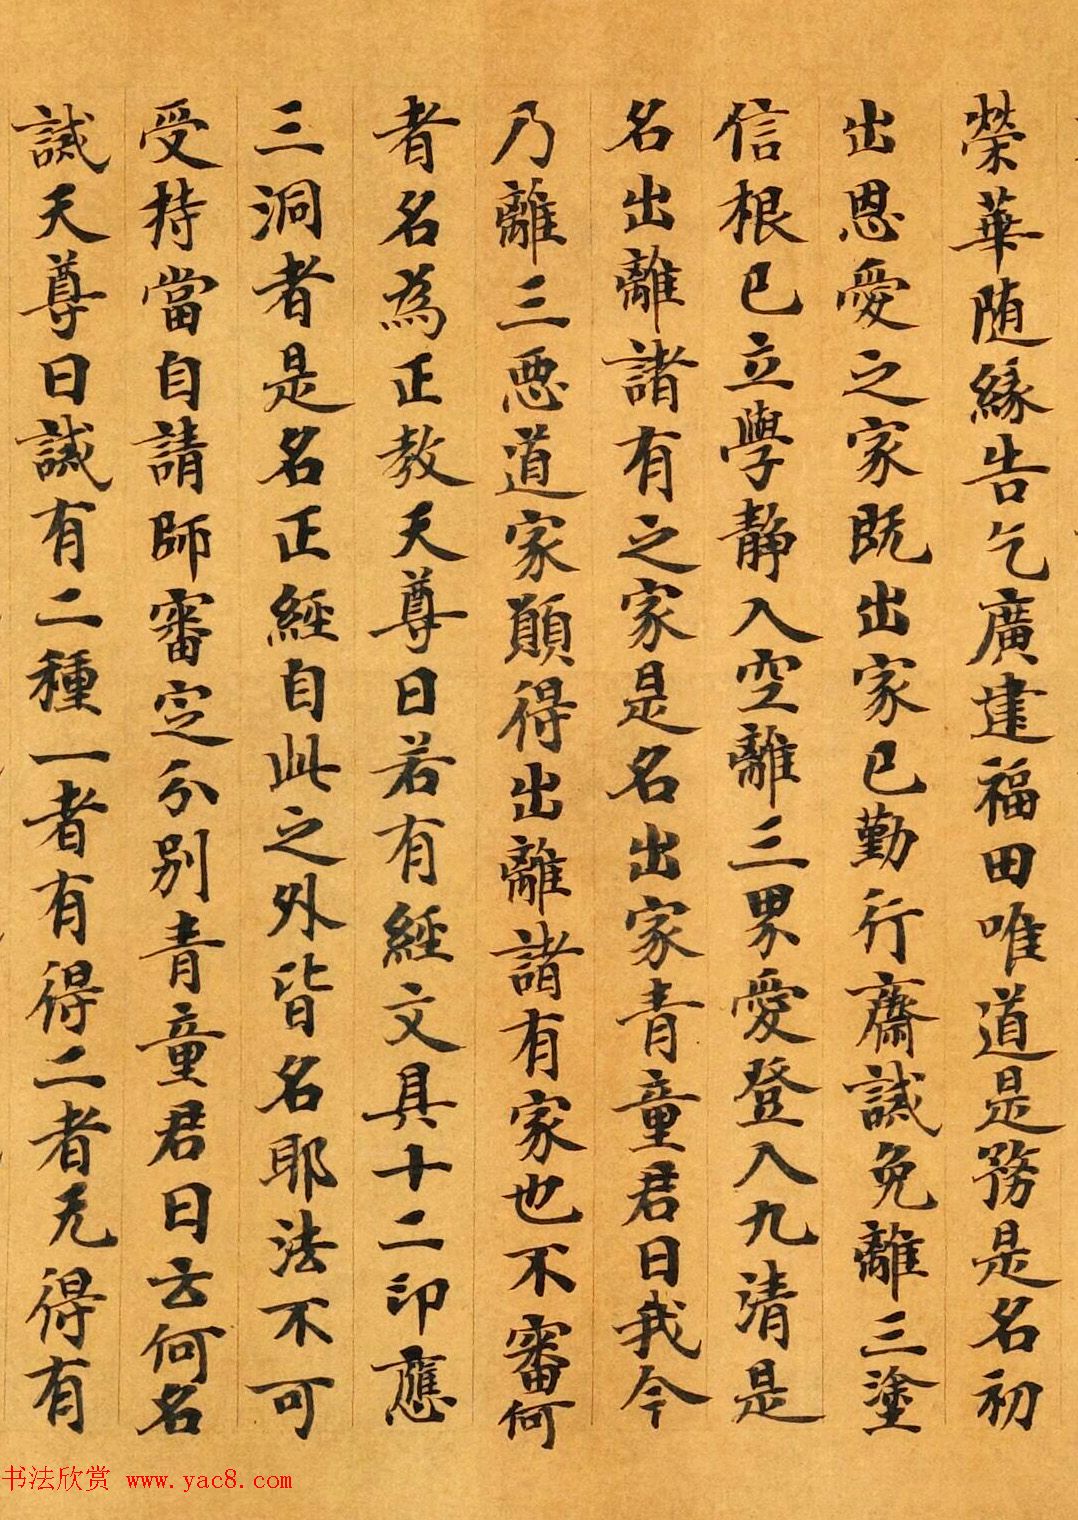 榮華随緣告乞廣建福田唯道是務是名初
出恩愛之家既出家已勤行齋誡免離三塗
信根已立學静入空離三界愛登入九清是
名出離諸有之家是名出家青童君曰我今
乃離三惡道家願得出離諸有家也不審何
者名為正教天尊曰若有經文具十二印應
三洞者是名正經自此之外皆名耶法不可
受持當自請師審定分別青童君曰云何名
誡天尊曰誡有二種一者有得二者无得有
书法欣赏 www.yac8.com